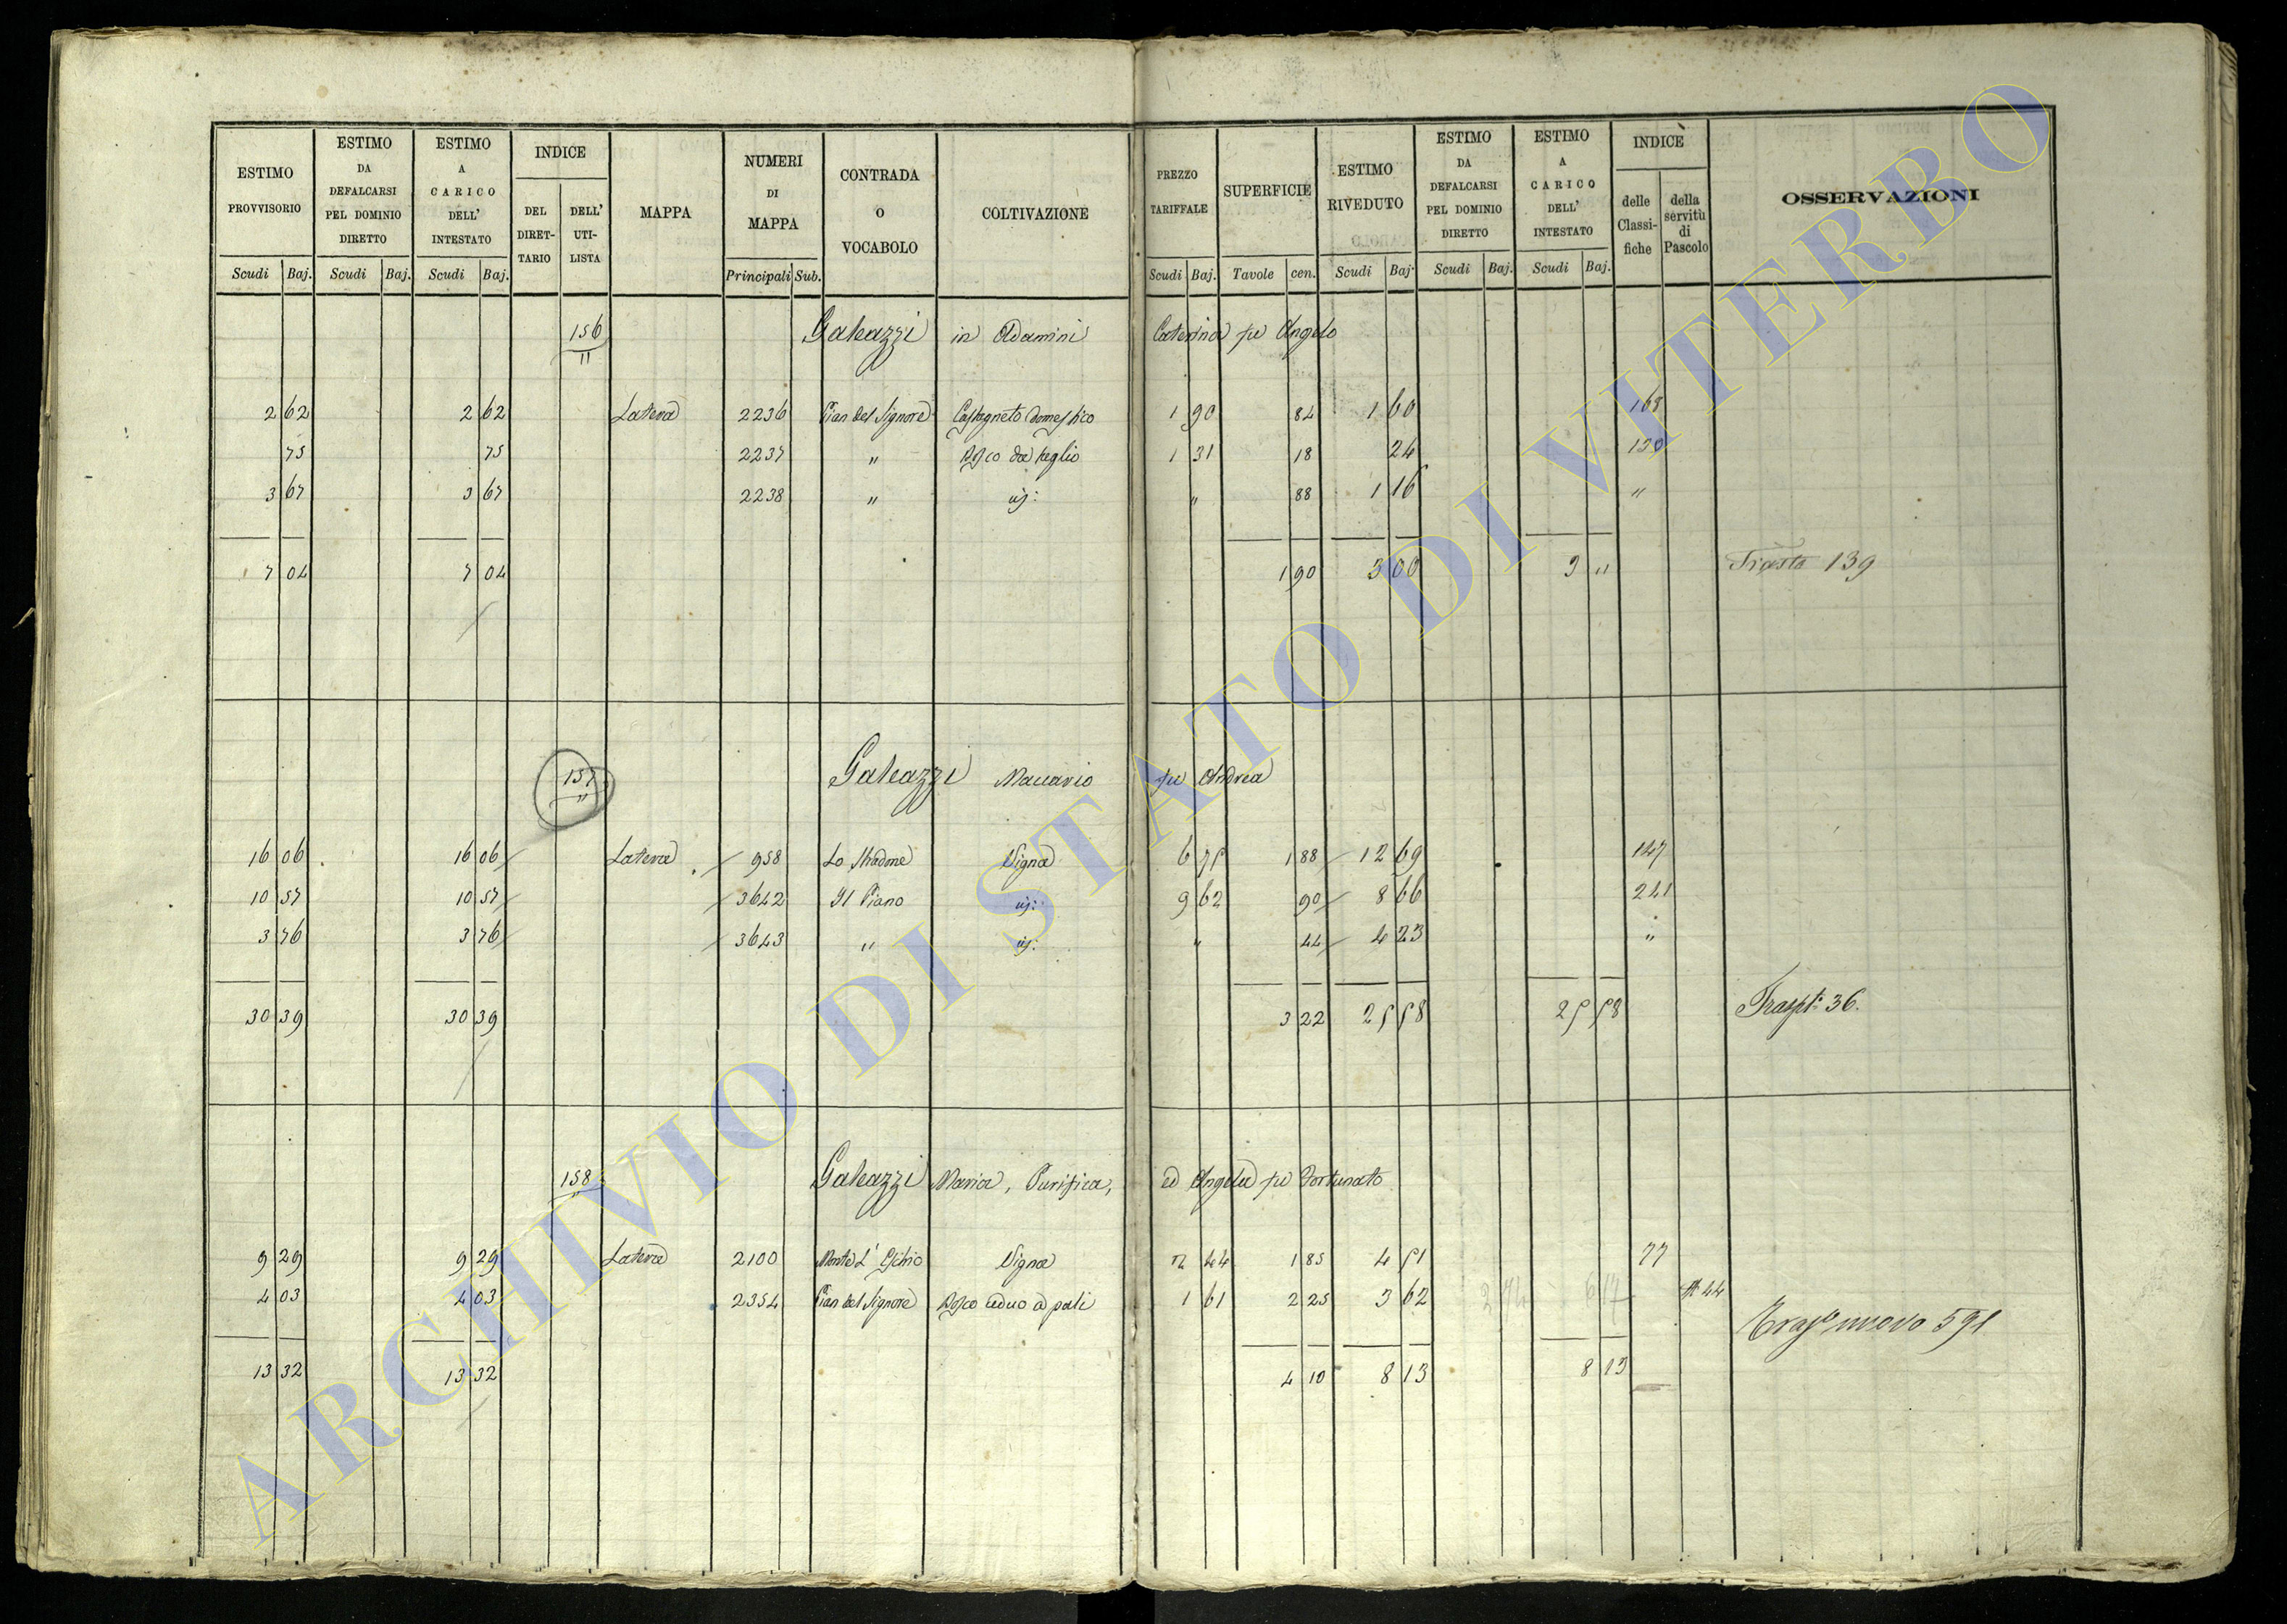 ESTIMO PROVVISORIO Scudi Baj.
ESTIMO DA DEFALCARSI PEL DOMINIO DIRETTO Scudi Baj.
ESTIMO A CARICO DELL' INTESTATO Scudi Baj.
INDICE DEL DIRET- TARIO DELL' UTI- LISTA
MAPPA
NUMERI DI MAPPA Principali Sub.
CONTRADA O VOCABOLO
COLTIVAZIONE
PREZZO TARIFFALE Scudi Baj.
SUPERFICIE Tavole cen.
ESTIMO RIVEDUTO Scudi Baj
ESTIMO DA DEFALCARSI PEL DOMINIO DIRETTO Scudi Baj.
ESTIMO A CARICO DELL' INTESTATO Scudi Baj.
INDICE delle Classi- fiche della servitù di Pascolo
OSSERVAZIONI
156 Galeazzi in Adamini Caterina fu Angelo
"
2 62 2 62 Latera 2236 Pian del Signore Castagneto domestico 1 90 84 1 60 168
75 75 2237 " Bosco da taglio 1 31 18 24 130
3 67 3 67 2238 " id: " 88 1 16 "
7 04 7 04 1 90 3 00 3 " 139
157 Galeazzi Maccario fu Andrea
"
16 06 16 06 Latera 958 Lo Stradone Vigna 6 75 1 88 12 69 147
10 57 10 57 3642 Il Piano id: 9 62 90 8 66 241
3 76 3 76 3643 " id: " 44 4 23 "
30 39 30 39 3 22 25 58 25 58 Traspt: 36.
158 Galeazzi Maria, Purifica, ed Angela fu Fortunato
"
9 29 9 29 Latera 2100 Vigna 2 44 1 85 4 51 77
4 03 4 03 2354 Pian del Signore Bosco ceduo a pali 1 61 2 25 3 62 44
nuovo 591
13 32 13 32 4 10 8 13 8 13
ARCHIVIO DI STATO DI VITERBO